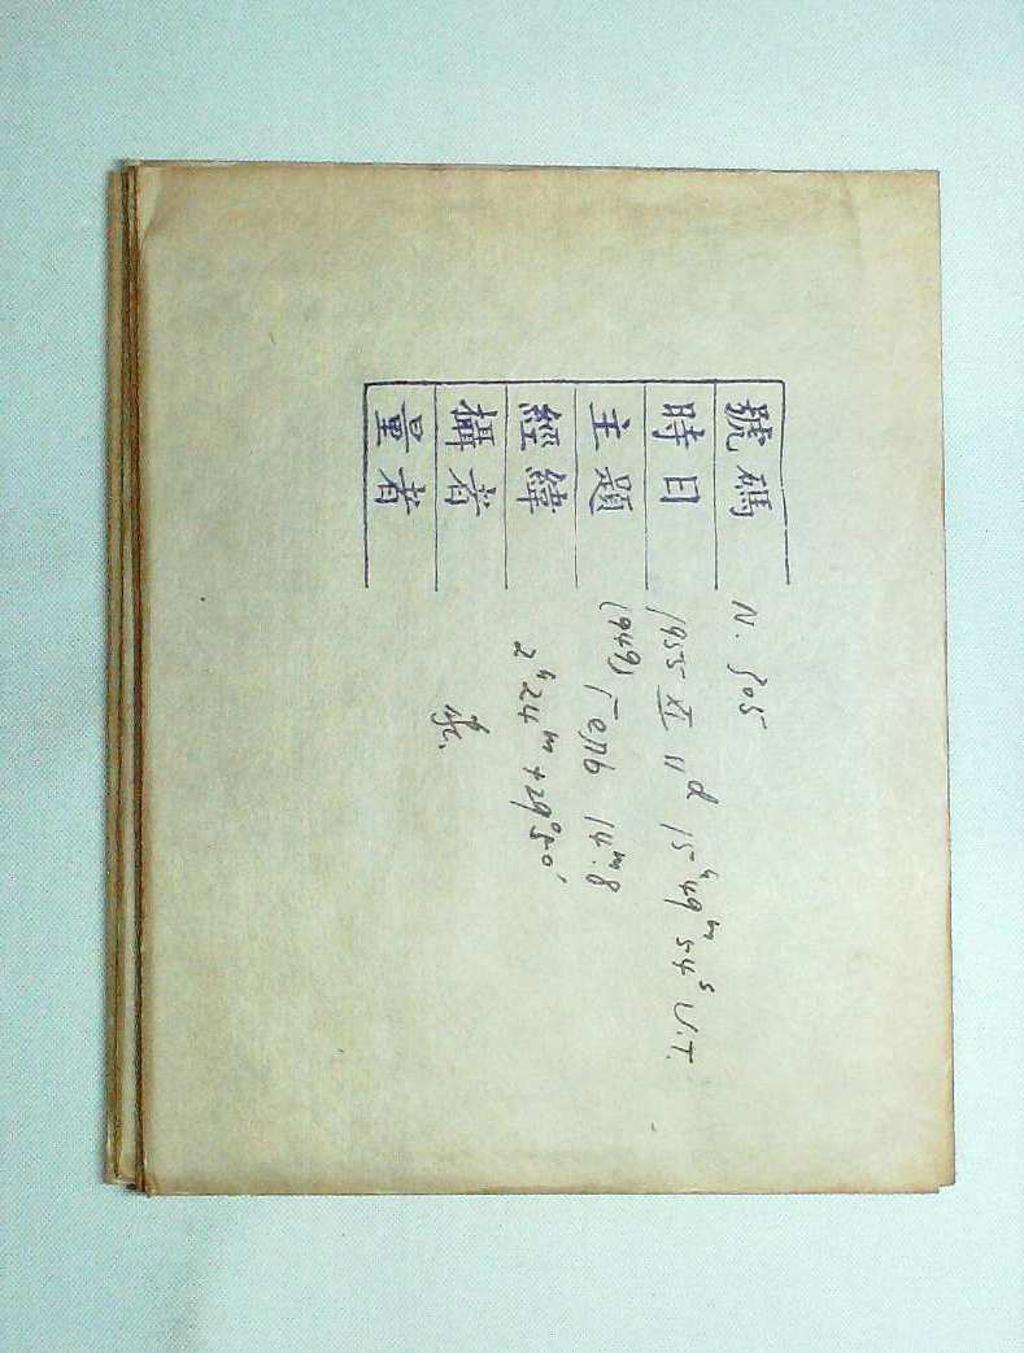 號碼 N.
時日 1955 XI 11ᵈ 15ʰ 49ᵐ 54ˢ U.T.
主題 (949) Гель 14ᵐ.8
經緯 2ʰ24ᵐ +29°50′
攝者
量者